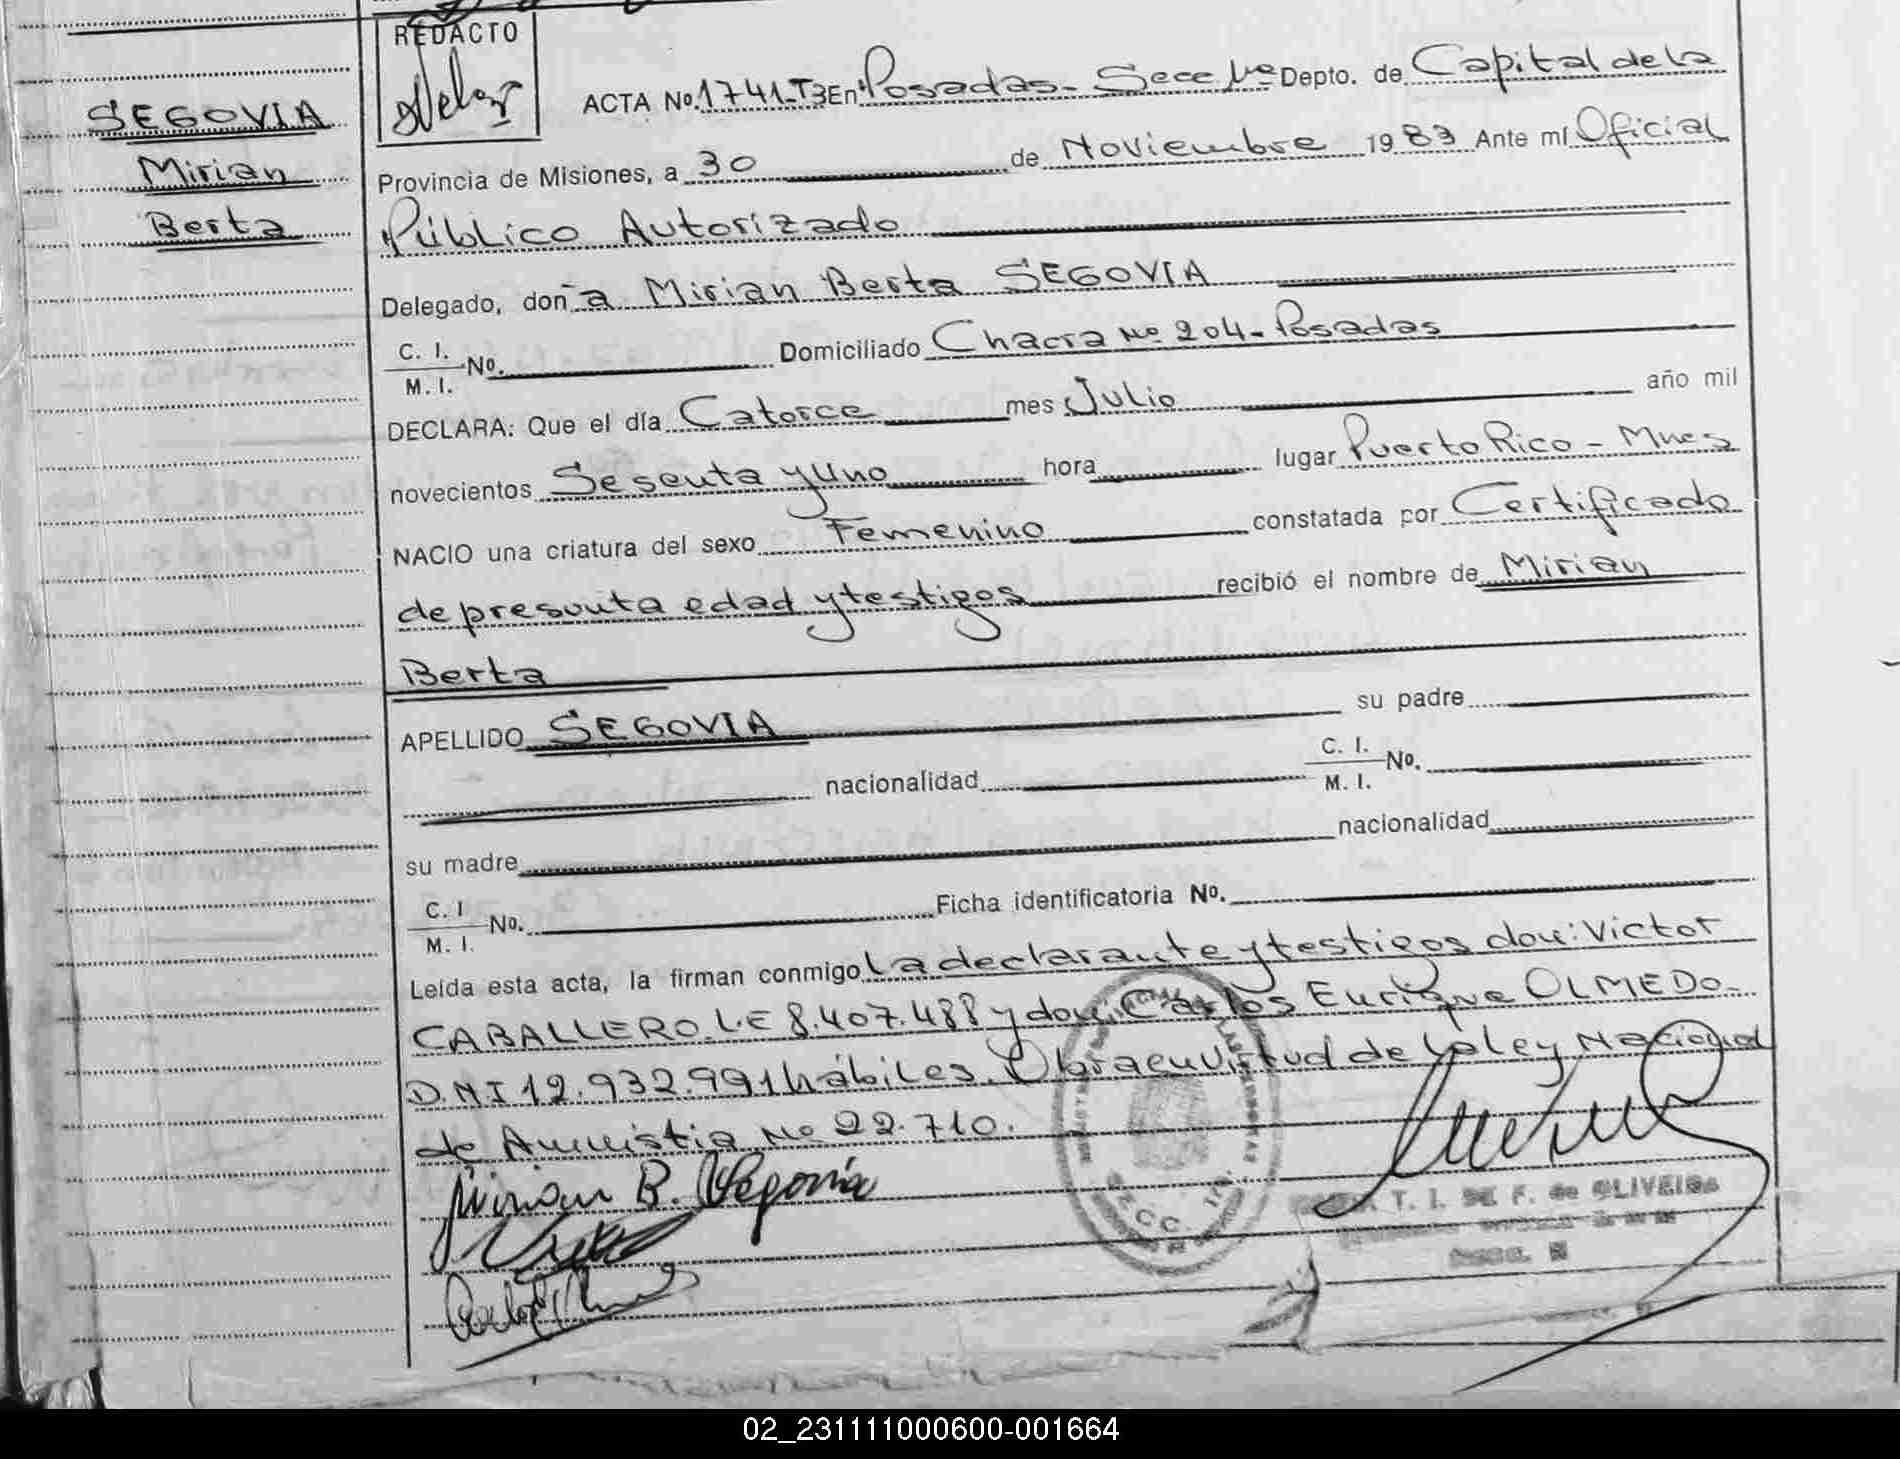 REDACTO
SEGOVIA
Mirian
Berta
ACTA No. 1741-T3 En Posadas - Secc 1ra Depto. de Capital de la
Provincia de Misiones, a 30 de Noviembre 1983 Ante mí Oficial
Público Autorizado
Delegado, don a Mirian Berta SEGOVIA
C. I.
M. I. No. Domiciliado Chacra No 204 - Posadas
DECLARA: Que el día Catorce mes Julio año mil
novecientos Sesenta y Uno hora lugar Puerto Rico - Mnes
NACIO una criatura del sexo Femenino constatada por Certificado
de presunta edad y testigos recibió el nombre de Mirian
Berta
APELLIDO SEGOVIA su padre
nacionalidad C. I.
M. I. No.
su madre nacionalidad
C. I
M. I. No. Ficha identificatoria No.
Leída esta acta, la firman conmigo La declarante y testigos don: Victor
CABALLERO. L.E 8.407.488 y don: Carlos Enrique OLMEDO-
D.N.I 12.932.991 hábiles. Obra en virtud de la ley Nacional
de Amnistia No 22.710.
Mirian B. Segovia
T. I. DE F. de OLIVEIRA
SECC.
02_231111000600-001664